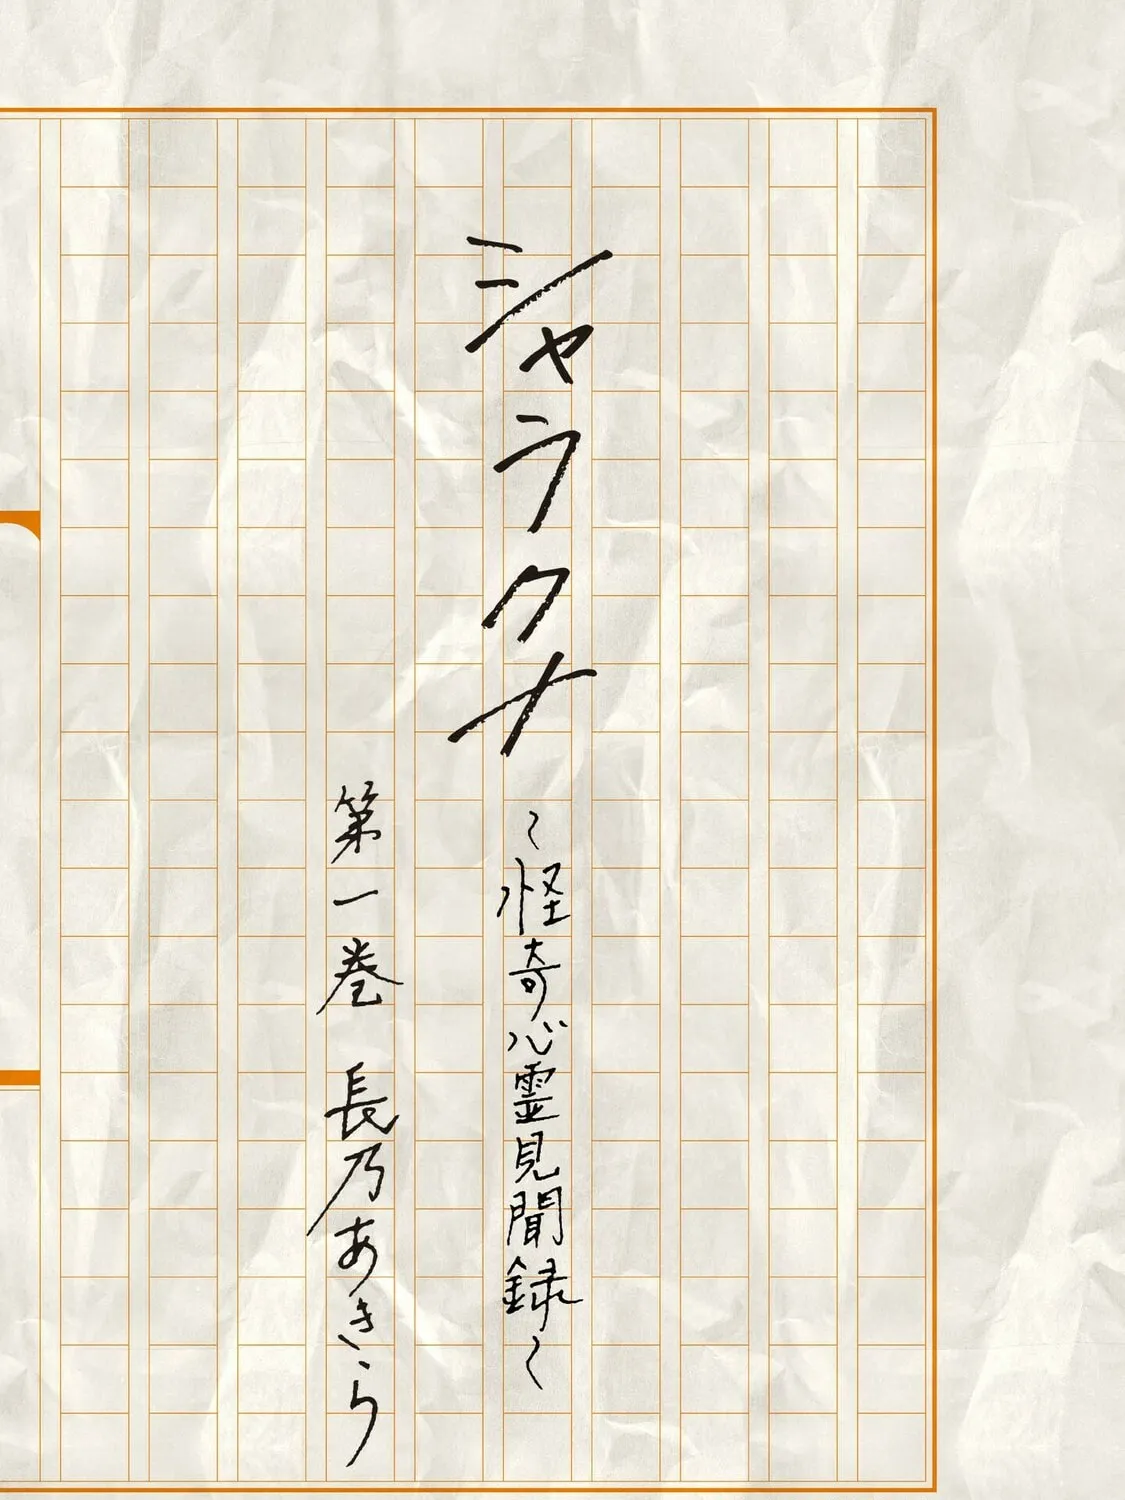 シャラクナ
〜怪奇心霊見聞録〜
第一巻 長乃あきら